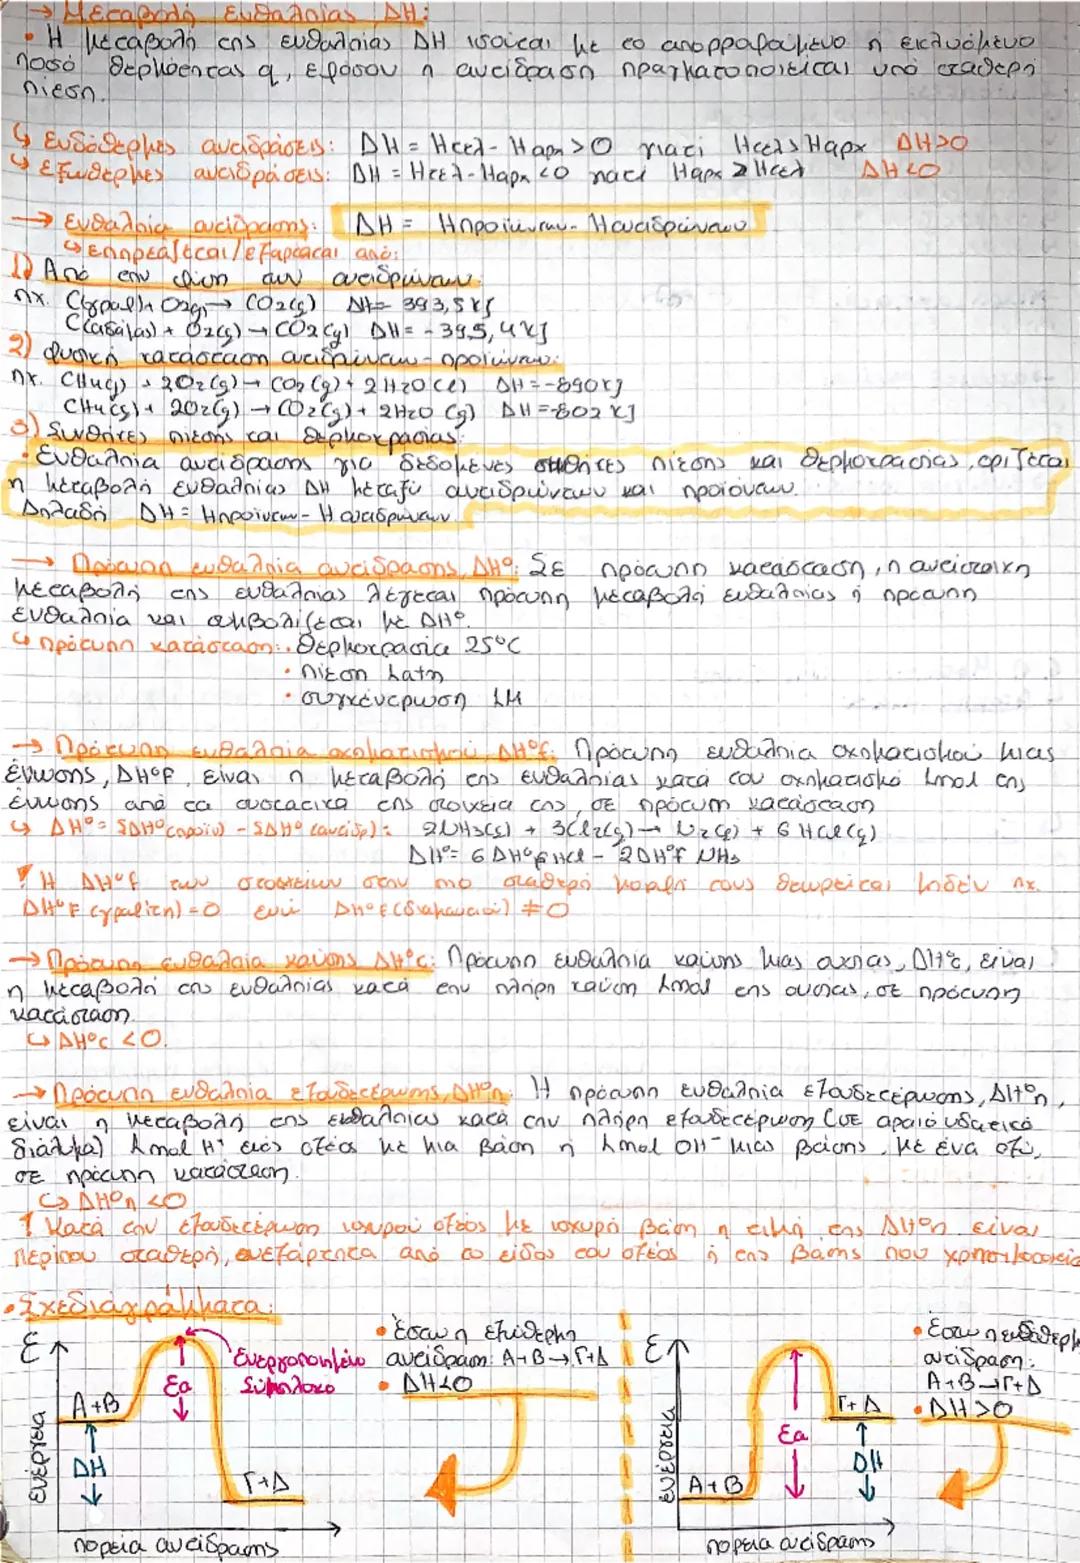 → Μεταβολή Ενθαλπίας ΔΗ:
• Η μεταβολή της ενθαλπίας ΔΗ ισούται με το απορροφούμενο ή εκλυόμενο
ποσό θερμότητας q, εφόσον η αντίδραση πραγματοποιείται υπό σταθερή
πίεση.
↳ Ενδόθερμες αντιδράσεις: ΔΗ = Ητελ - Ηαρχ > 0 γιατί Ητελ > Ηαρχ ΔΗ>0
↳ Εξώθερμες αντιδράσεις: ΔΗ = Ητελ - Ηαρχ < 0 γιατί Ηαρχ > Ητελ ΔΗ<0
→ Ενθαλπία αντίδρασης: ΔΗ = Ηπροϊόντων - Ηαντιδρώντων
↳ Επηρεάζεται/εξαρτάται από:
1) Από την φύση των αντιδρώντων.
πχ. C(γραφ) + O2(g) → CO2(g) ΔΗ= 393,5 KJ
C(αδάμας) + O2(g) → CO2(g) ΔΗ= - 395,4 KJ
2) Φυσική κατάσταση αντιδρώντων - προϊόντων:
πχ. CH4(g) + 2O2(g) → CO2(g) + 2H2O(l) ΔΗ=-890KJ
CH4(g) + 2O2(g) → CO2(g) + 2H2O(g) ΔΗ=-802 KJ
3) Συνθήκες πίεσης και θερμοκρασίας:
• Ενθαλπία αντίδρασης για δεδομένες συνθήκες πίεσης και θερμοκρασίας, ορίζεται
η μεταβολή ενθαλπίας ΔΗ μεταξύ αντιδρώντων και προϊόντων.
Δηλαδή ΔΗ = Ηπροϊόντων - Ηαντιδρώντων.
→ Πρότυπη ενθαλπία αντίδρασης, ΔΗ°: Σε πρότυπη κατάσταση, η αντίστοιχη
μεταβολή της ενθαλπίας λέγεται πρότυπη μεταβολή ενθαλπίας ή πρότυπη
ενθαλπία και συμβολίζεται με ΔΗ°.
↳ πρότυπη κατάσταση: • Θερμοκρασία 25°C
• πίεση 1atm
• συγκέντρωση 1M
→ Πρότυπη ενθαλπία σχηματισμού, ΔΗ°f: Πρότυπη ενθαλπία σχηματισμού μιας
ένωσης, ΔΗ°f, είναι η μεταβολή της ενθαλπίας κατά τον σχηματισμό 1mol της
ένωσης από τα συστατικά της στοιχεία της, σε πρότυπη κατάσταση
↳ ΔΗ°= ΣΔΗ°(προϊόν) - ΣΔΗ°(αντιδρ): 2NH3(g) + 3Cl2(g) → N2(g) + 6HCl(g)
ΔΗ°= 6ΔΗ°f HCl - 2ΔΗ°f NH3
! Η ΔΗ°f των στοιχείων στην πιο σταθερή μορφή τους θεωρείται μηδέν πχ.
ΔΗ°f (γραφίτη) = 0 ενώ ΔΗ°f (διαμαντιού) ≠ 0
→ Πρότυπη ενθαλπία καύσης ΔΗ°c: Πρότυπη ενθαλπία καύσης μιας ουσίας, ΔΗ°c, είναι
η μεταβολή της ενθαλπίας κατά την πλήρη καύση 1mol της ουσίας, σε πρότυπη
κατάσταση.
↳ ΔΗ°c < 0.
→ Πρότυπη ενθαλπία εξουδετέρωσης, ΔΗ°n: Η πρότυπη ενθαλπία εξουδετέρωσης, ΔΗ°n,
είναι η μεταβολή της ενθαλπίας κατά την πλήρη εξουδετέρωση (σε αραιό υδατικό
διάλυμα) 1mol H⁺ ενός οξέος με μια βάση ή 1mol OH⁻ μιας βάσης, με ένα οξύ,
σε πρότυπη κατάσταση.
↳ ΔΗ°n < 0
! Κατά την εξουδετέρωση ισχυρού οξέος με ισχυρή βάση η τιμή της ΔΗ°n είναι
περίπου σταθερή, ανεξάρτητα από το είδος του οξέος ή της βάσης που
• Σχεδιαγράμματα:
Ε
ενέργεια
A+B
ΔΗ
Εα
Ενεργοποιημένο
Σύμπλοκο
Γ+Δ
πορεία αντίδρασης
• έστω η εξώθερμη
αντίδραση: A+B → Γ+Δ
• ΔΗ<0
Ε
ενέργεια
A+B
Εα
Γ+Δ
ΔΗ
πορεία αντίδρασης
• έστω η ενδόθερμη
αντίδραση:
A+B → Γ+Δ
• ΔΗ>0